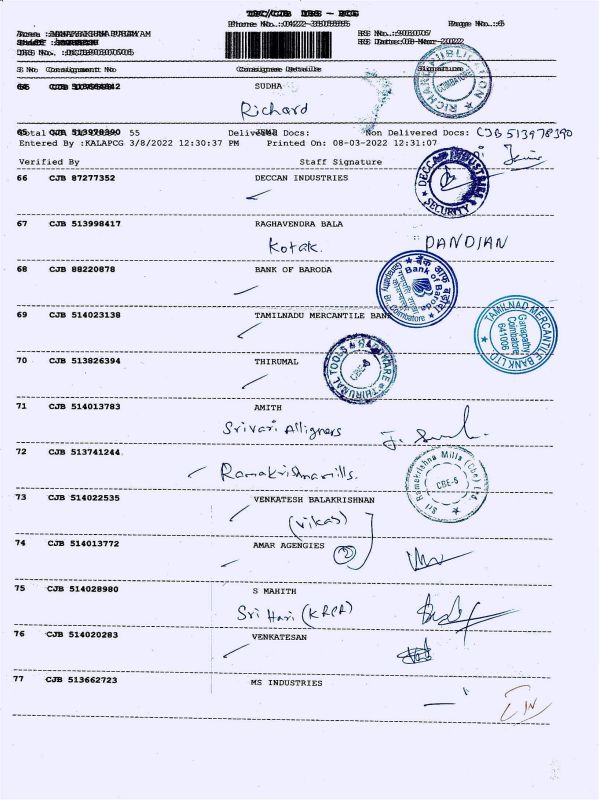 Page No.:6
S No Consignment No Consignee Details Signature
SUDHA
Richard
RICHARD PUBLICATION
COIMBATORE
55 Delivered Docs: Non Delivered Docs: CJB 513978390
Entered By :KALAPCG 3/8/2022 12:30:37 PM Printed On: 08-03-2022 12:31:07
Verified By Staff Signature
66 CJB 87277352 DECCAN INDUSTRIES
DECCAN INDUSTRIES
SECURITY
67 CJB 513998417 RAGHAVENDRA BALA
Kotak. PANDIAN
68 CJB 88220878 BANK OF BARODA
Bank of Baroda
69 CJB 514023138 TAMILNADU MERCANTILE BANK
TAMILNAD MERCANTILE BANK LTD
Ganapathy
Coimbatore
641006
70 CJB 513826394 THIRUMAL
THIRUMAL TOOLS & HARDWARE
71 CJB 514013783 AMITH
Srivari Alligners
72 CJB 513741244
Ramakrishna mills.
Sri Ramakrishna Mills (Cbe) Ltd
CBE-6
73 CJB 514022535 VENKATESH BALAKRISHNAN
(Vikas)
74 CJB 514013772 AMAR AGENGIES
2
75 CJB 514028980 S MAHITH
Sri Hari (KRCR)
76 CJB 514020283 VENKATESAN
77 CJB 513662723 MS INDUSTRIES